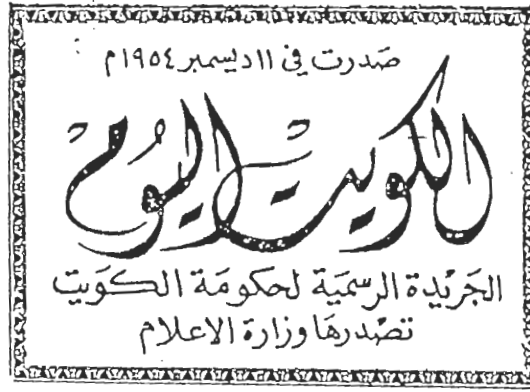 صَدرت في ١١ ديسمبر ١٩٥٤م
الكويت اليوم
الجَريْدة الرسمَية لحكومَة الكوَيت
تصْدرهَا وزارة الاعلام